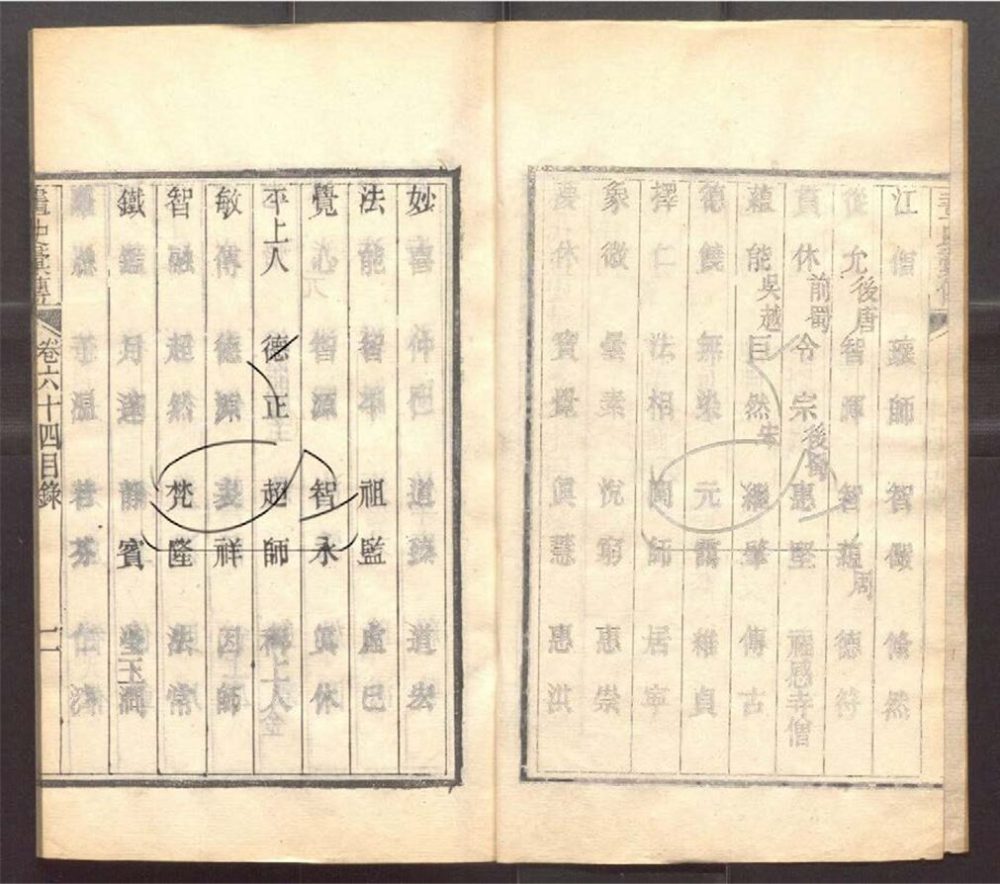 江僧 臻師 智儼 翛然
從允後唐 智暉 智蘊周 德符
貫休前蜀 令宗後蜀 惠堅 福感寺僧
蘊能吳越 巨然宋 繼肇 傳古
德饒 無染 元靄 維貞
擇仁 法相 師 居寧
象微 曇素 悅窮 惠崇
夢休 寶覺 真慧 惠洪
妙喜 仲仁 道臻 道宏
法能 智平 祖監 虛己
覺心 智源 智永 真休
平上人 德正 超師 上人金
敏傳 德源 祥 因師
智融 超然 梵隆 法常
鐵鑑 月蓬 靜賓 瑩玉澗
羅 子溫 若芬 仁濟
畫史彙傳 卷六十四目錄 二